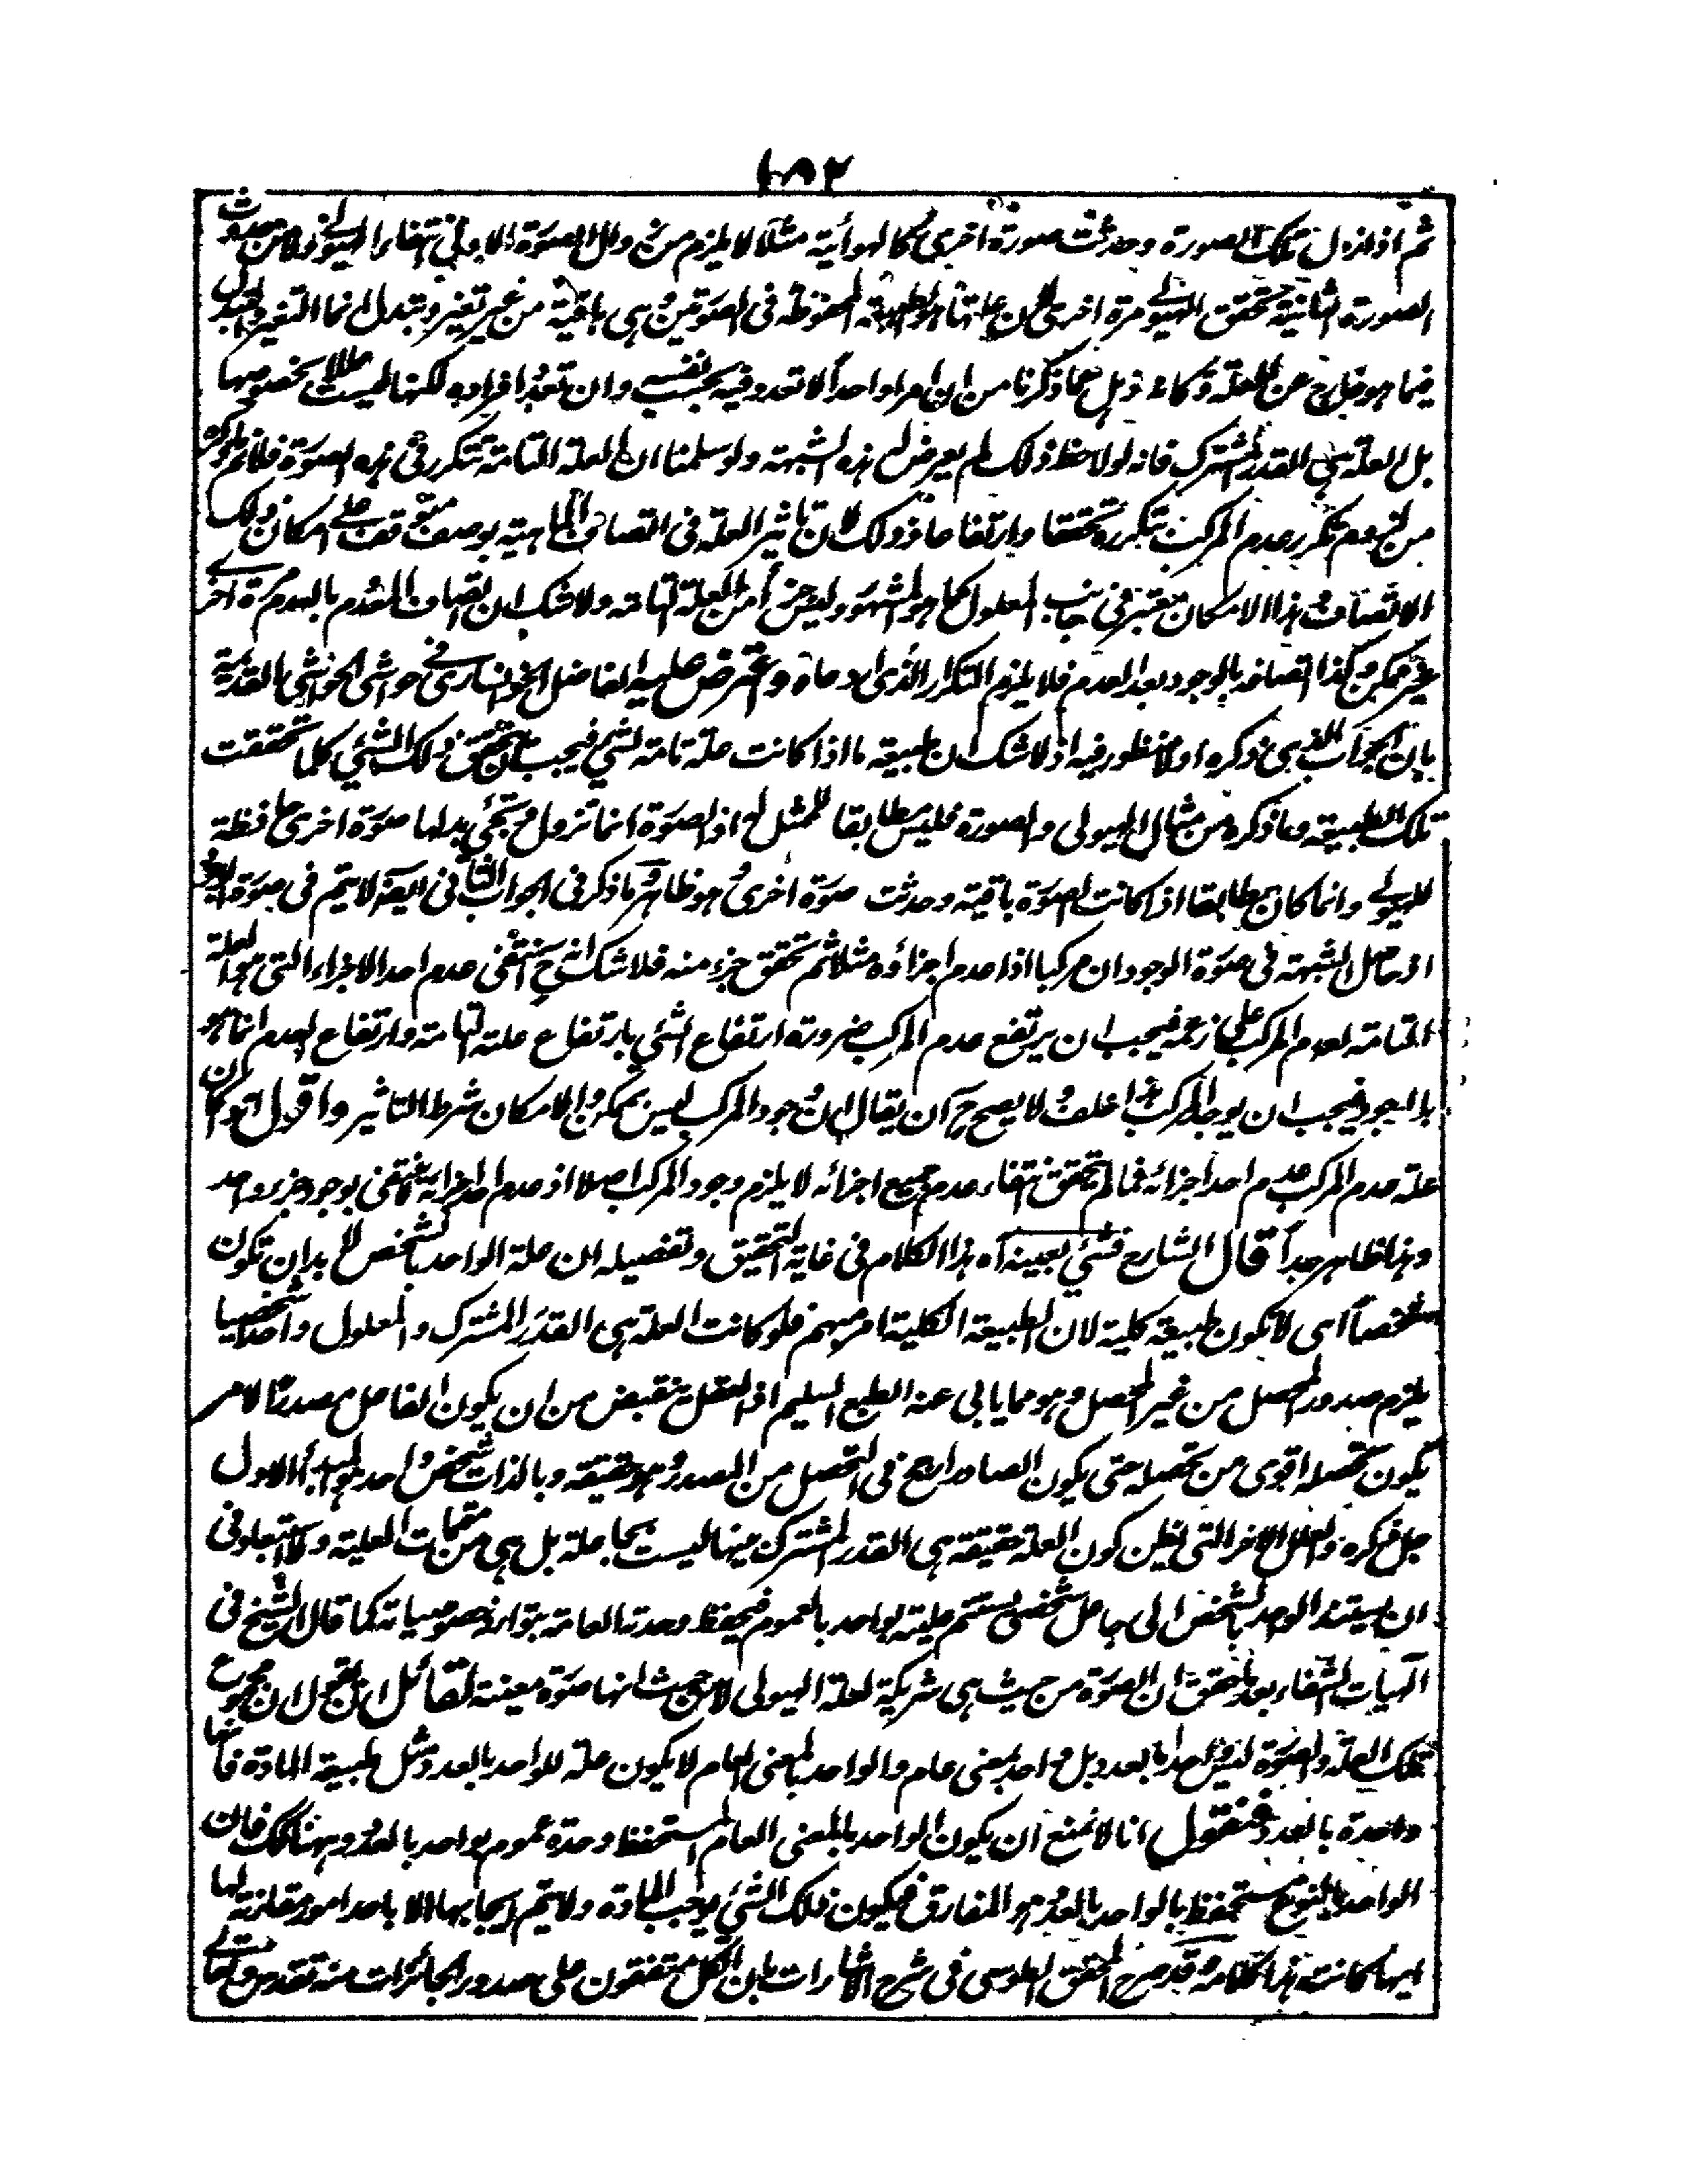 ١٨٢
ثم اذا زال تلك الصورة وحدثت صورة اخرى كالهوائية مثلا لا يلزم من زوال الصورة الاولى انتفاء الهيولى ولا من حدوث
الصورة الثانية تحقق الهيولى مرة اخرى لان علتها هو الطبيعة المحفوظة فى الصورتين وهى باقية من غير تغير وتبدل انما التغير والتبدل
فيما هو خارج عن العلة وكانه ذهل عما ذكرنا من ان امرا واحدا لا تعدد فيه بحسب نفسه وان تعدد افراده لكنها ليست عللا بخصوصها
بل العلة هى القدر المشترك فانه لو لاحظ ذلك لم يعرض له هذه الشبهة ولو سلمنا ان العلة التامة تتكرر فى هذه الصورة فلا نم ما ذكره
من لزوم تكرر عدم المركب بتكرره تحققا وارتفاعا وذلك لان تاثير العلة فى اتصاف الماهية بوصف متوقف على امكان ذلك
الاتصاف وهذا الامكان معتبر فى جانب المعلول كما هو المشهور وليس جزأ من العلة التامة ولا شك ان اتصاف المعدوم بالعدم مرة اخرى
غير ممكن وكذا اتصافه بالوجود بعد العدم فلا يلزم التكرار الذى ادعاه واعترض عليه الفاضل الخوانسارى فى حواشى الحواشى القديمة
بان الجواب الذى ذكره اولا منظور فيه اذ لا شك ان طبيعة ما اذا كانت علة تامة لشئ فيجب ان تحقق ذلك الشئ كلما تحققت
تلك الطبيعة وما ذكره من مثال الهيولى والصورة فليس مطابقا للمثل له اذ الصورة انما تزول وتجئ بدلها صورة اخرى حافظة
للهيولى وانما كان مطابقا اذا كانت الصورة باقية وحدثت صورة اخرى وهو ظاهر وما ذكر فى الجواب الثانى ايضا لا يتم فى صورة الوجود
اذ حاصل الشبهة فى صورة الوجود ان مركبا اذا عدم اجزاؤه مثلا ثم تحقق جزء منه فلا شك انه ح انتفى عدم احد الاجزاء التى هو العلة
التامة لعدم المركب على زعمه فيجب ان يرتفع عدم المركب ضرورة ارتفاع الشئ بارتفاع علته التامة وارتفاع العدم انما هو
بالوجود فيجب ان يوجد المركب هذا خلف ولا يصح ح ان يقال ان وجود المركب ليس بممكن والامكان شرط التاثير واقول لو كان
علة عدم المركب عدم احد اجزائه فما لم تحقق انتفاء عدم جميع اجزائه لا يلزم وجود المركب اصلا اذ عدم احد اجزائه لا ينتفى بوجود جزء واحد
وهذا ظاهر جدا قال الشارح فشئ بعينه آه هذا الكلام فى غاية التحقيق وتفصيله ان علة الواحد بالشخص لا بد ان تكون
متشخصا اى لا تكون طبيعة كلية لان الطبيعة الكلية امر مبهم فلو كانت العلة هى القدر المشترك والمعلول واحدا شخصيا
يلزم صدور المحصل من غير المحصل وهو مما يابى عنه الطبع السليم اذ العقل ينقبض من ان يكون الفاعل مصدرا لامر
يكون تحصله اقوى من تحصله حتى يكون الصادر ارجح فى التحصل من المصدر وهو حقيقة وبالذات شخص واحد هو المبدأ الاول
جل ذكره والعلل الاخر التى يظن كون العلة حقيقة هى القدر المشترك منها ليست بجاعلة بل هى من متممات العلية ولا استبعاد فى
ان يستند الواحد بالشخص الى جاعل شخصى يستتم علية بواحد بالعموم فيحفظ وحدته العامة بتوارد خصوصياته كما قال الشيخ فى
آلهيات الشفاء بعد ما حقق ان الصورة من حيث هى شريكة لعلة الهيولى لا من حيث انها صورة معينة لقائل ان يقول ان مجموع
تلك العلة والصورة ليس واحدا بالعدد بل واحد بمعنى عام والواحد بالمعنى العام لا يكون علة للواحد بالعدد ومثل طبيعة المادة فانها
واحدة بالعدد فنقول انا لا نمنع ان يكون الواحد بالمعنى العام المستحفظ وحدة عمومه بواحد بالعدد وههنا كك فان
الواحد بالنوع مستحفظ بالواحد بالعدد هو المفارق فيكون ذلك الشئ يوجب المادة ولا يتم ايجابها الا باحد امور مقارنة لها
ايها كانت هذا كلامه وقد صرح المحقق الطوسى فى شرح الاشارات بان الكل متفقون على صدور الجائزات منه تقدس وتعالى